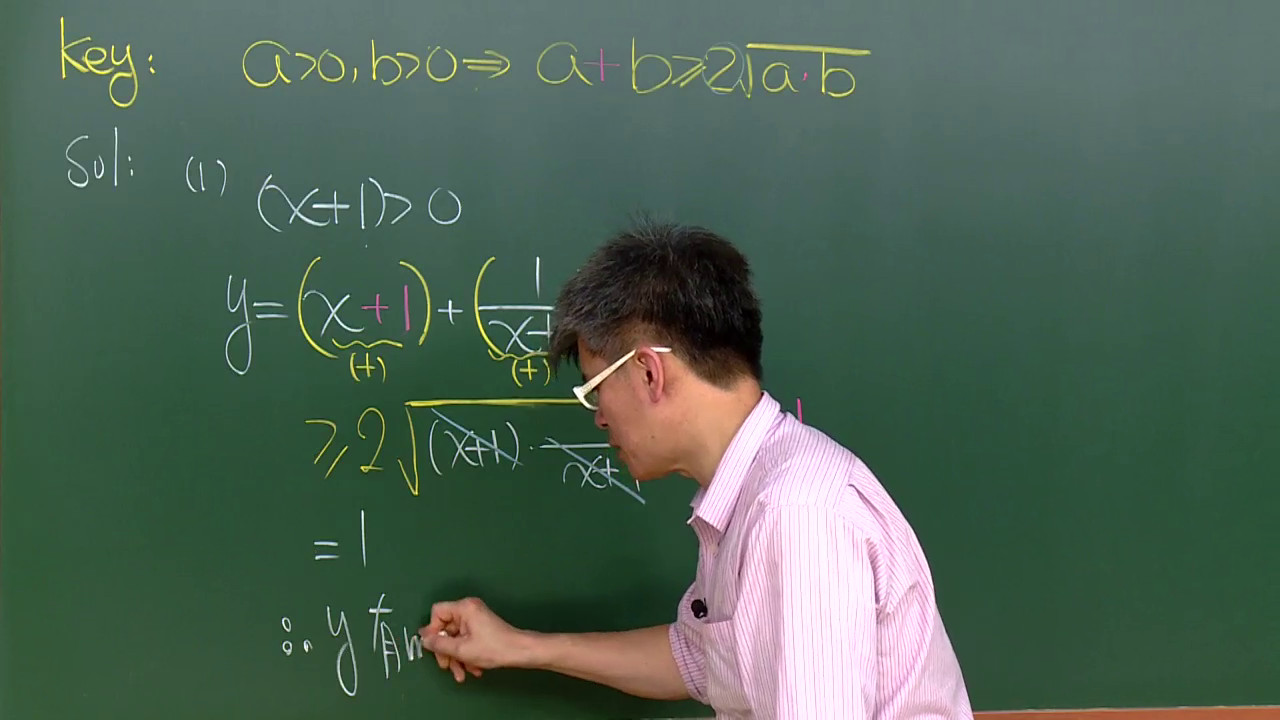 Key: a>0, b>0 ⇒ a+b≥2√a·b
Sol: (1) (x+1)>0
y=(x+1)+(1/x+
(+) (+)
≥2√(x+1)·—/x+1
=1
∴ y 有 m